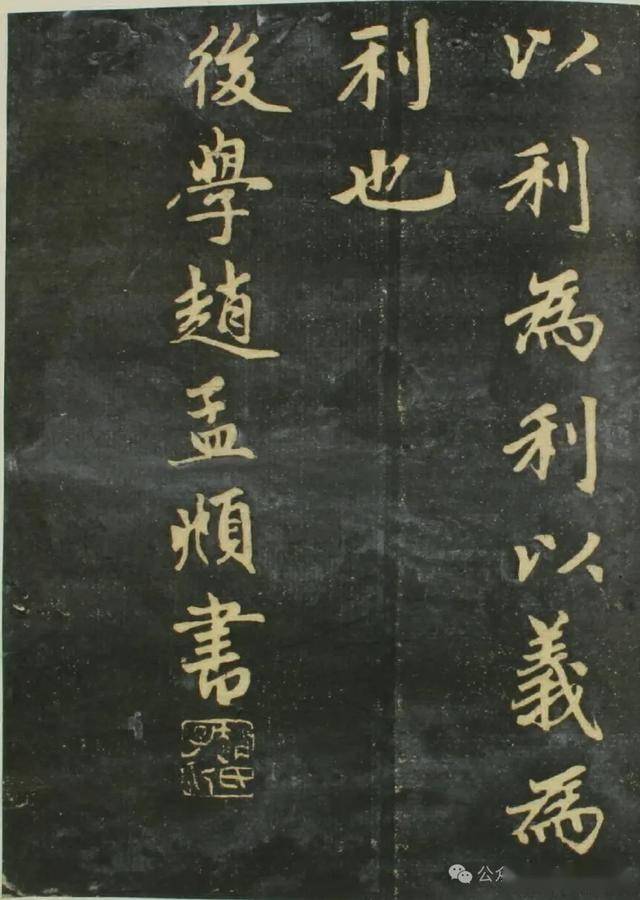 以利為利以義為
利也
後學趙孟頫書
公众